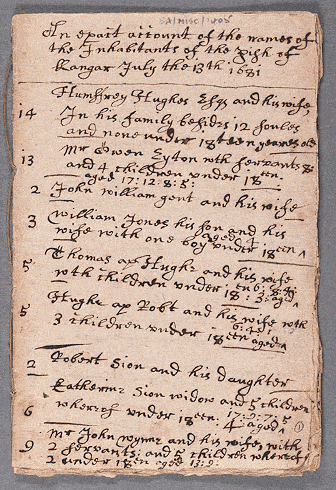 SA/MISC/1405
An exact account of the names of
the Inhabitants of the pish of
Llangar July the 13th 1681
Humfrey Hughes Esqr and his wife,
14 In his family besides 12 soules
and none under 18teen yeares old
13 Mr Owen Eyton wth servants 8
and 4 children under 18teen.
aged 17: 12: 8: 5:
2 John william gent and his wife
3 William Jones his son and his
wife with one boy under 18teen
aged 4
5 Thomas ap Hughe and his wife
wth children under 18: 3: aged
5 Hughe ap Robt and his wife wth
3 children under 18teen aged
6: 4:
2 Robert Sion and his daughter
Catherine Sion widow and 5 children
17: 9: 7: 5
6 whereof under 18teen. 4 aged
9 Mr John wynne and his wife, with
2 servants: and 5 children whereof
2 under 18teen aged 13: 9: